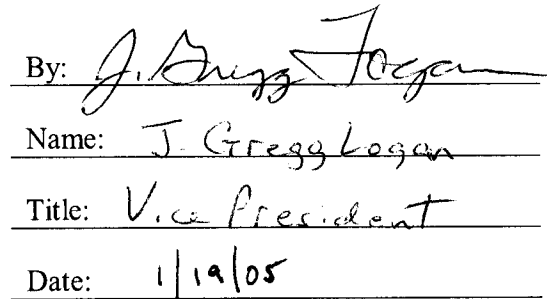 By: J. Gregg Logan
Name: J. Gregg Logan
Title: Vice President
Date: 1/19/05